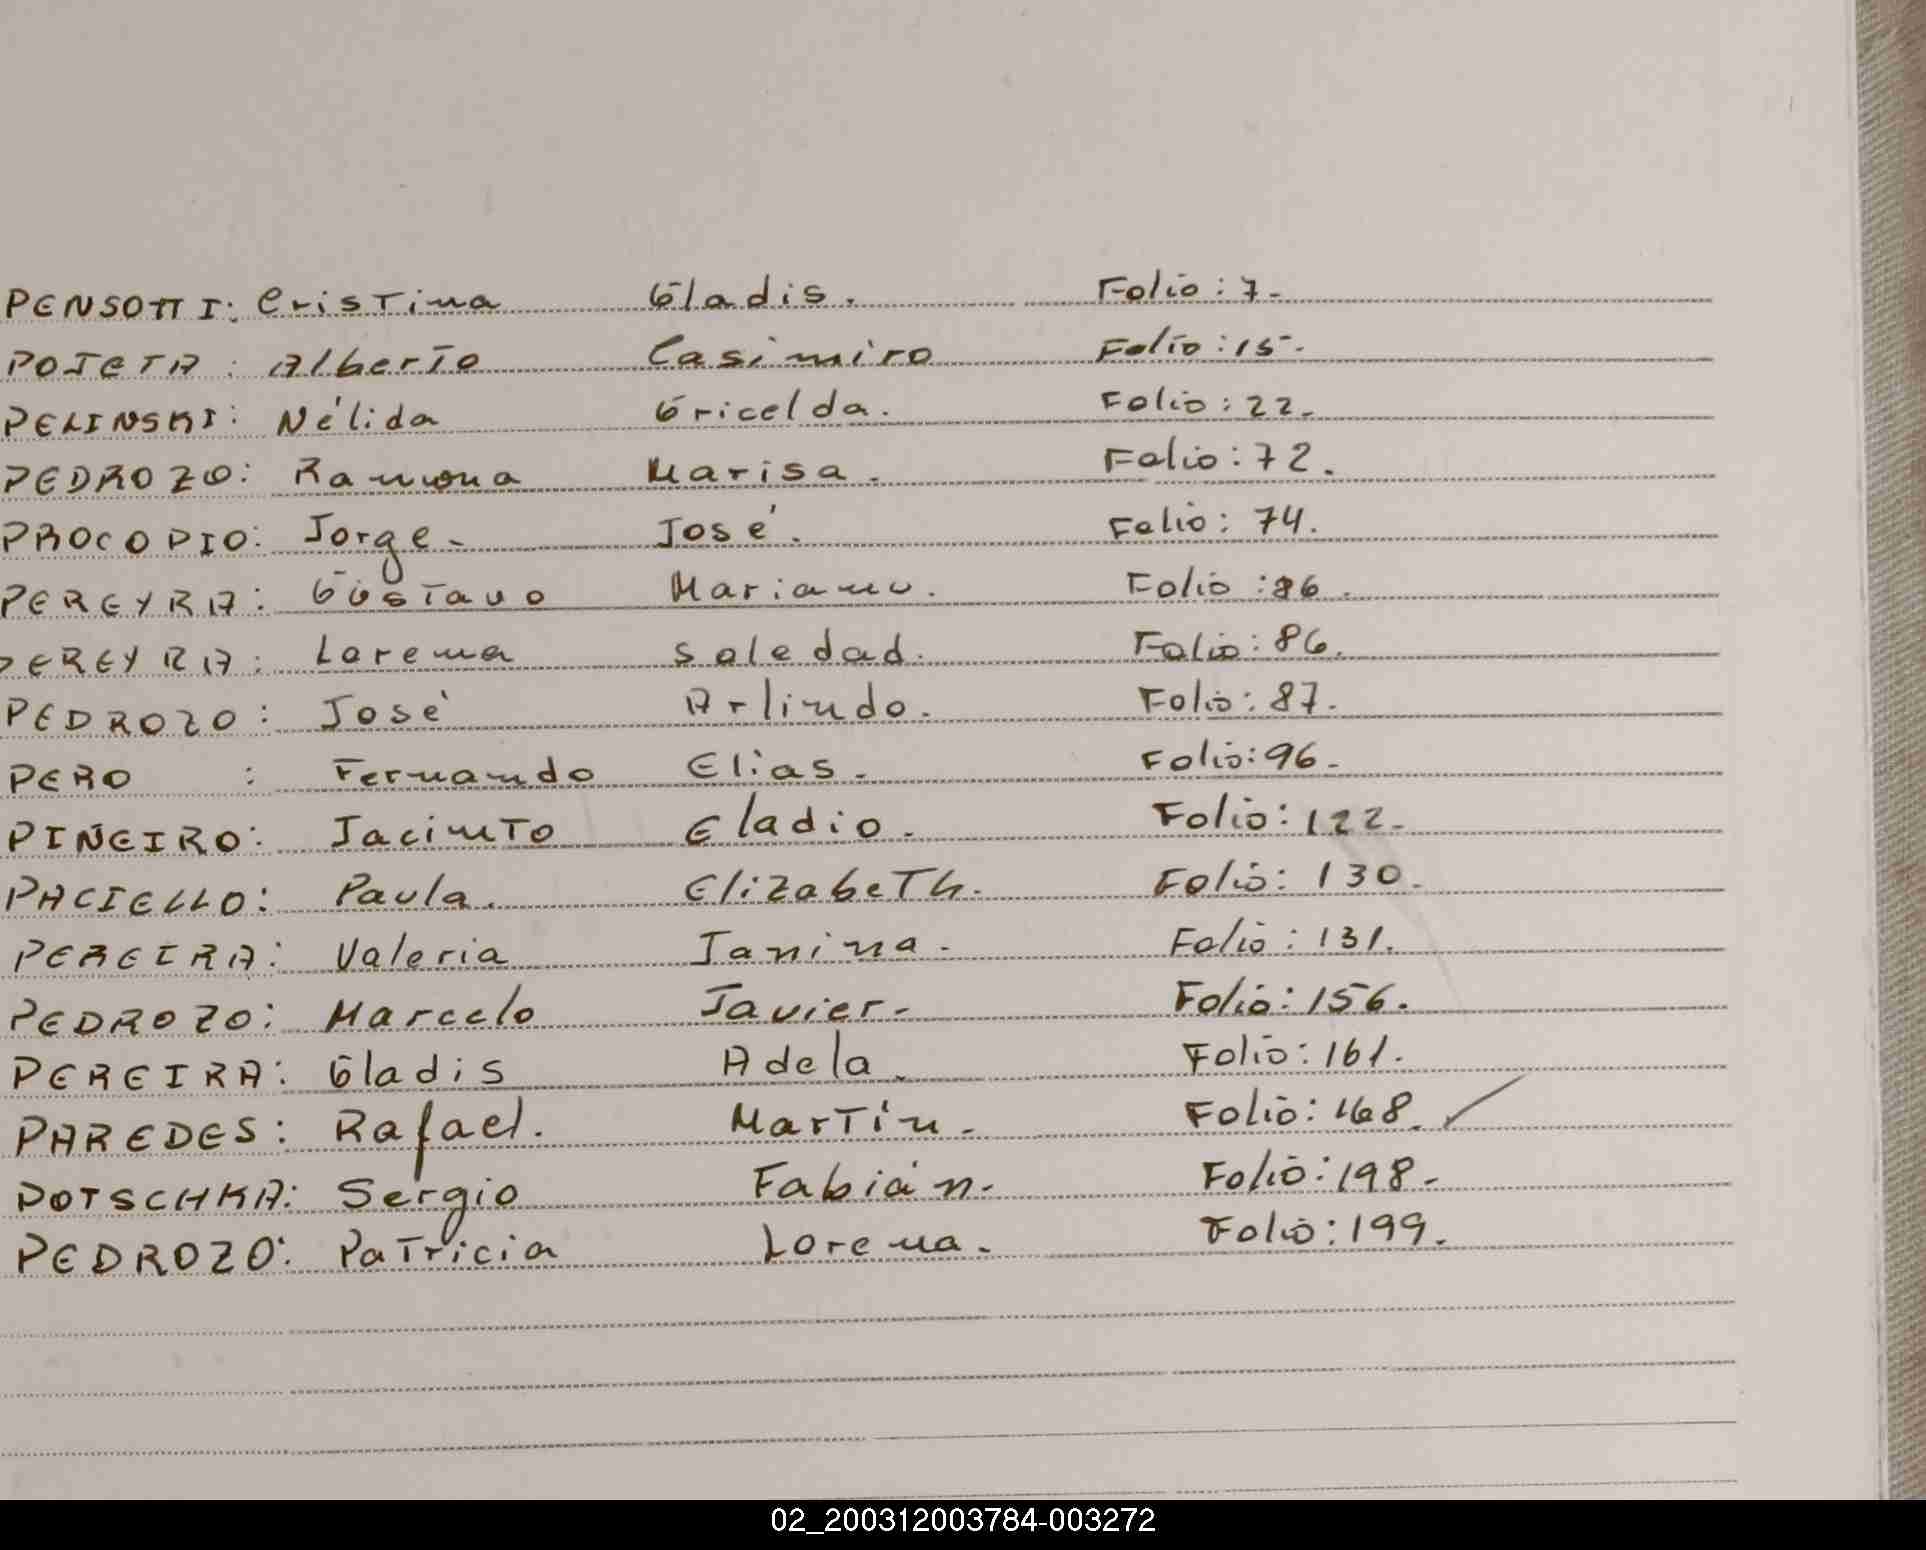 PENSOTTI: Cristina Gladis. Folio: 7.-
POJETA: Alberto Casimiro Folio: 15.-
PELINSKI: Nélida Gricelda. Folio: 22.-
PEDROZO: Ramona Marisa. Folio: 72.
PROCOPIO: Jorge.- José. Folio: 74.
PEREYRA: Gustavo Mariano. Folio: 86.
PEREYRA: Lorena Soledad. Folio: 86.
PEDROZO: José Arlindo. Folio: 87.
PERO : Fernando Elias. Folio: 96.-
PIÑEIRO: Jacinto Eladio. Folio: 122.-
PACIELLO: Paula. Elizabeth. Folio: 130.
PEREIRA: Valeria Janina. Folio: 131.
PEDROZO: Marcelo Javier.- Folio: 156.
PEREIRA: Gladis Adela. Folio: 161.
PAREDES: Rafael. Martín.- Folio: 168.
POTSCHKA: Sergio Fabián.- Folio: 198.-
PEDROZO: Patricia Lorena.- Folio: 199.
02_200312003784-003272